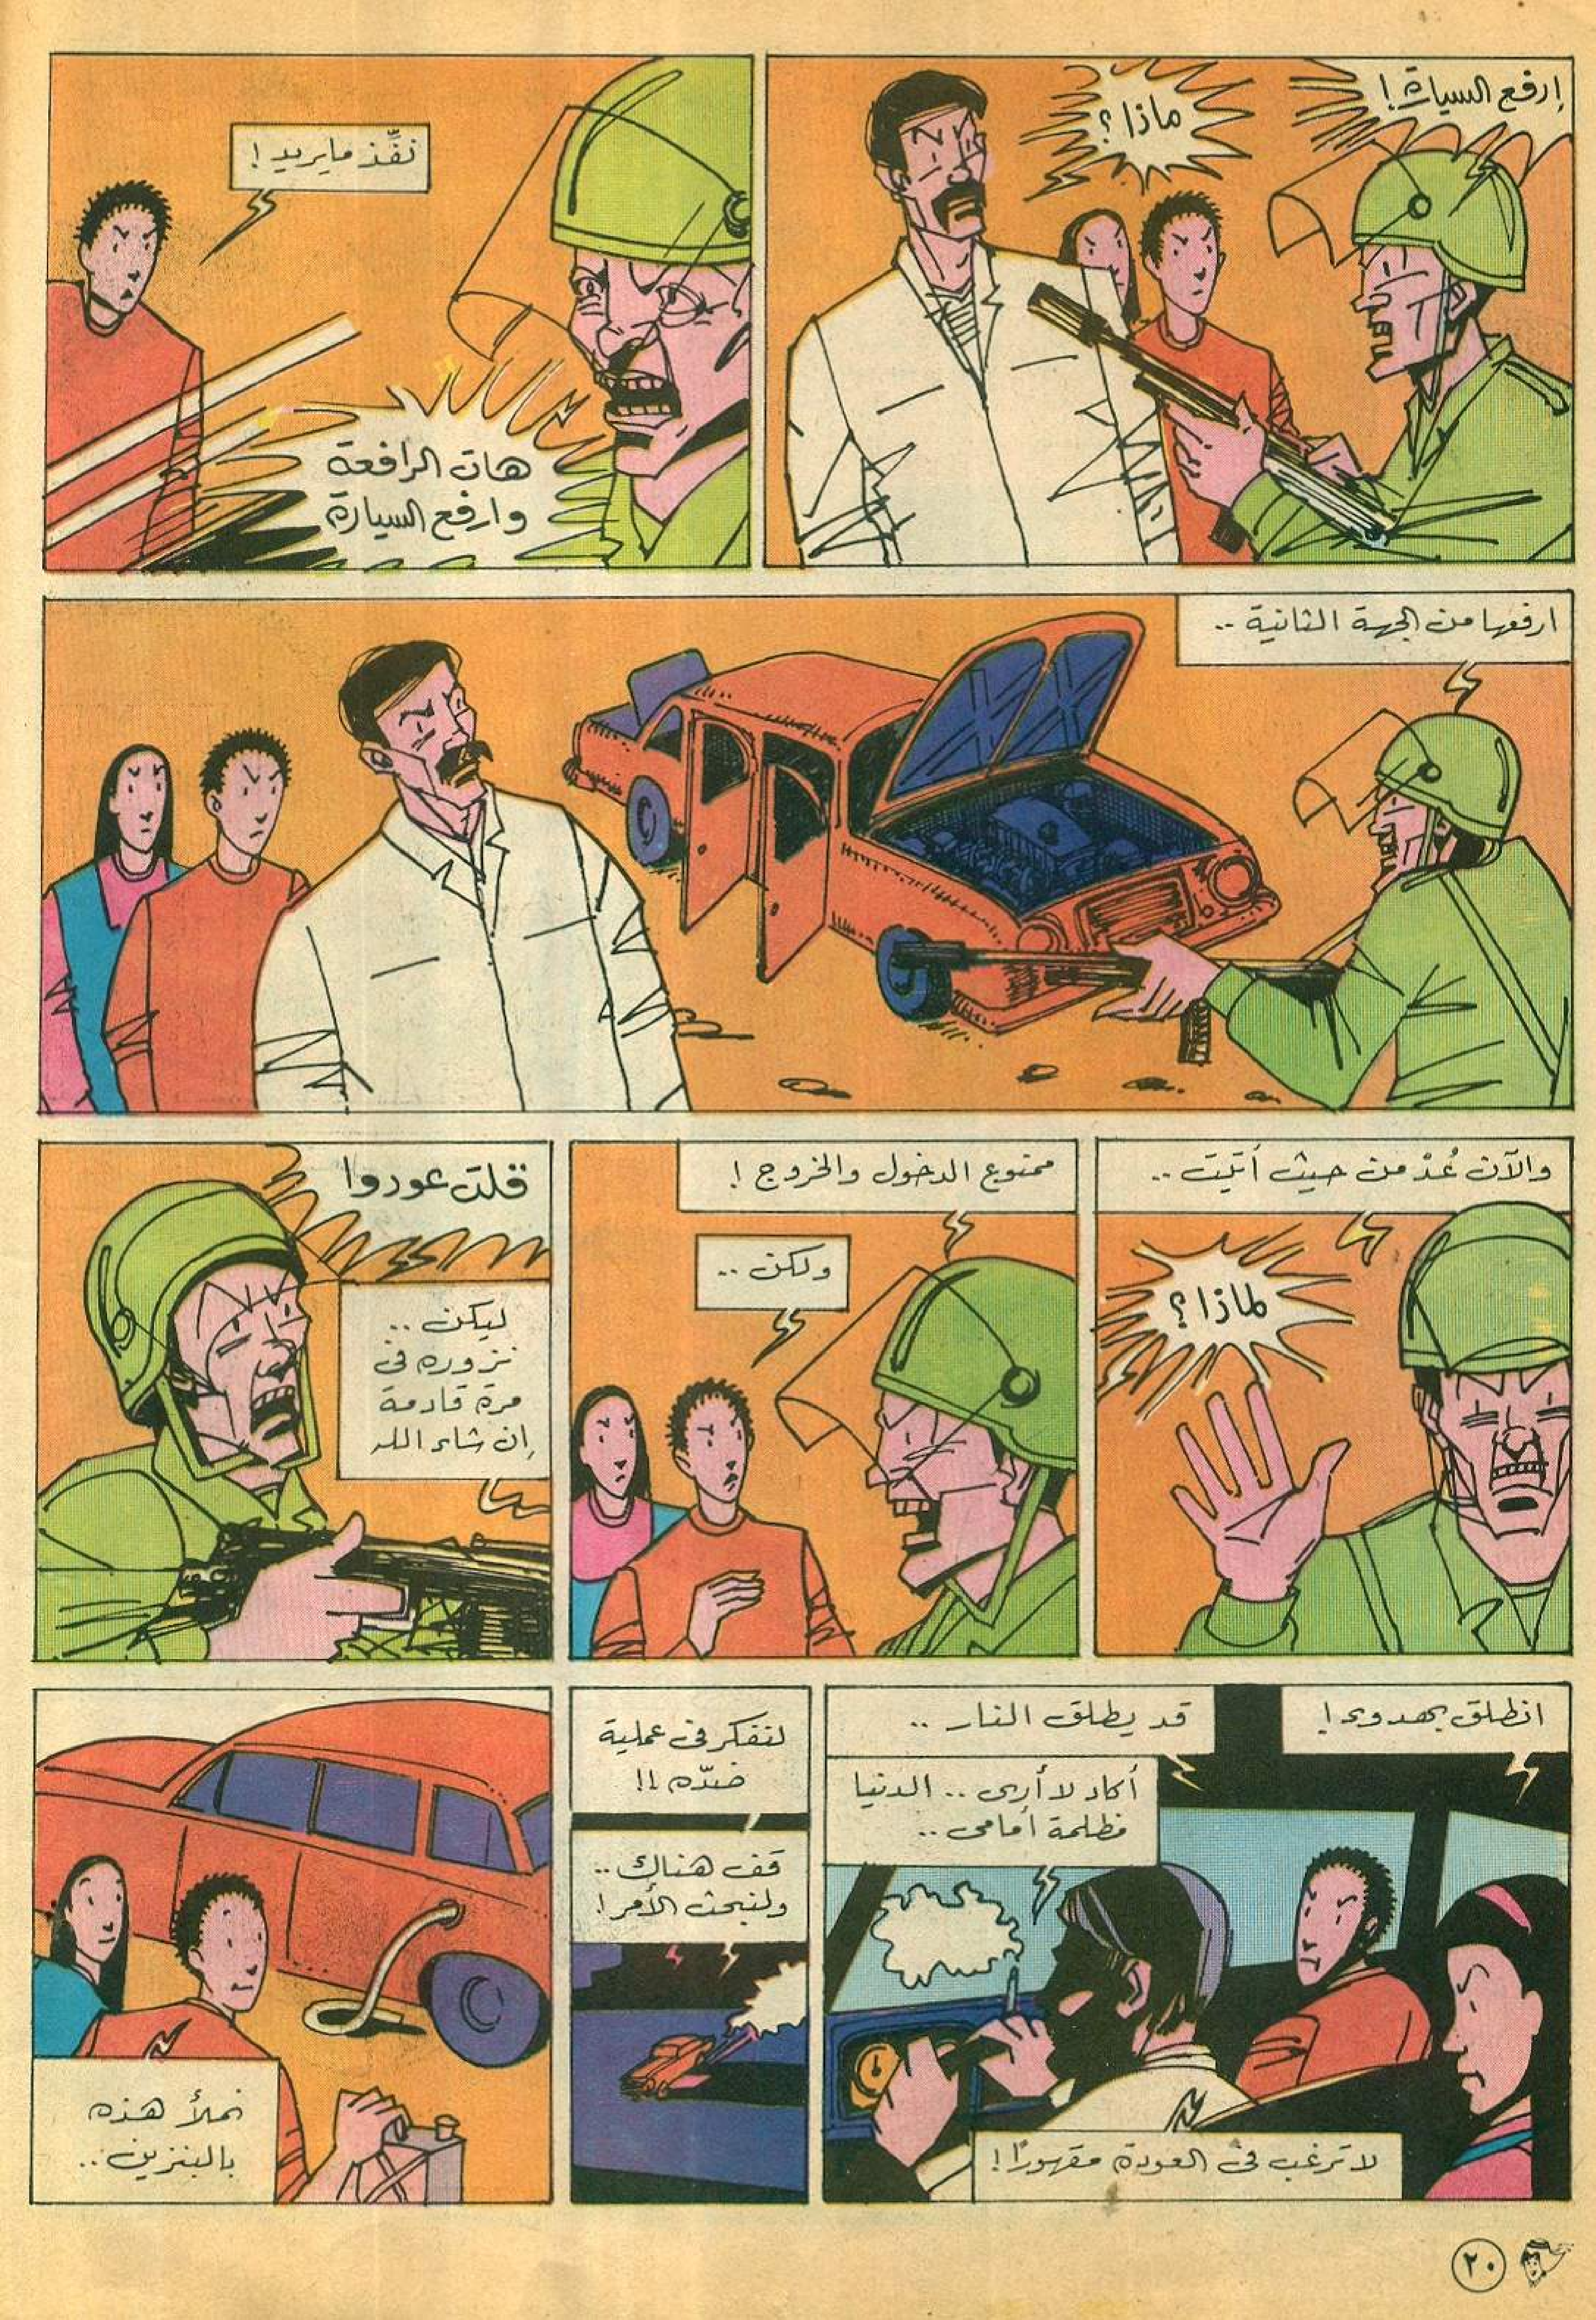 إرفع السيارة!
ماذا؟
نفِّذ ما يريد!
هات الرافعة
وارفع السيارة
ارفعها من الجهة الثانية ..
والآن عُدْ من حيث أتيت ..
لماذا؟
ممنوع الدخول والخروج!
ولكن ..
قلت عودوا
ليكن ..
نزوره في
مرة قادمة
إن شاء الله
انطلق بهدوء!
قد يطلق النار ..
أكاد لا أرى .. الدنيا
مظلمة أمامي ..
لا ترغب في العودة مقهورًا!
لنفكر في عملية
ضدّه!!
قف هناك ..
ولنبحث الأمر!
نملأ هذه
بالبنزين ..
٢٠